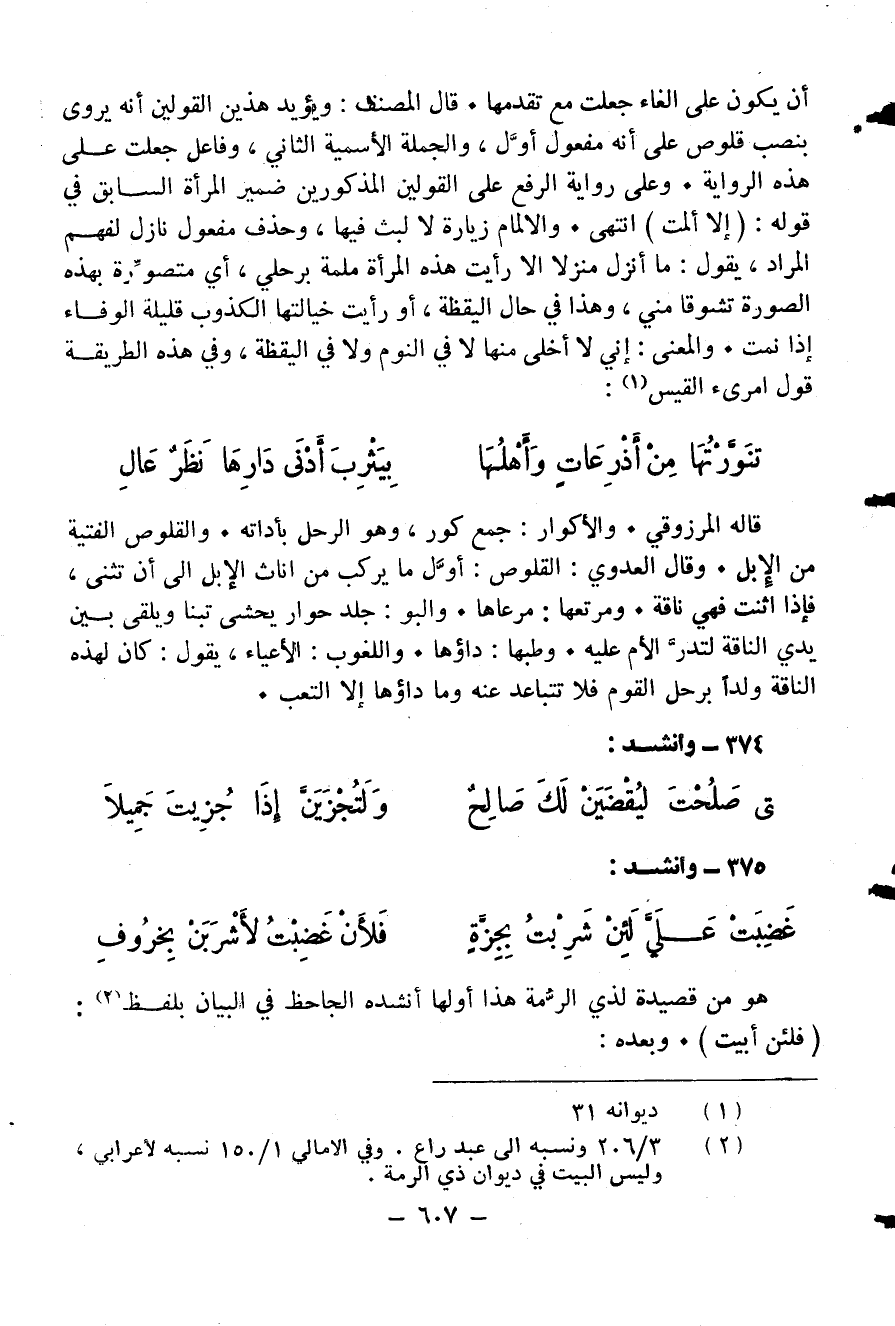 أن يكون على الغاء جعلت مع تقدمها ٠ قال المصنف : ويؤيد هذين القولين أنه يروى
بنصب قلوص على أنه مفعول أوَّل ، والجملة الأسمية الثاني ، وفاعل جعلت عـــلى
هذه الرواية ٠ وعلى رواية الرفع على القولين المذكورين ضمير المرأة الســـابق في
قوله : ( إلا ألمت ) انتهى ٠ والالمام زيارة لا لبث فيها ، وحذف مفعول نازل لفهــم
المراد ، يقول : ما أنزل منزلا الا رأيت هذه المرأة ملمة برحلي ، أي متصوِّرة بهذه
الصورة تشوقا مني ، وهذا في حال اليقظة ، أو رأيت خيالتها الكذوب قليلة الوفــاء
إذا نمت ٠ والمعنى : إني لا أخلى منها لا في النوم ولا في اليقظة ، وفي هذه الطريقــة
قول امرىء القيس(١) :
تنَوَّرْتُهَا مِنْ أَذْرِعَاتٍ وَأَهْلُهَا بِيَثْرِبَ أَدْنَى دَارِهَا نَظَرٌ عَالِ
قاله المرزوقي ٠ والأكوار : جمع كور ، وهو الرحل بأداته ٠ والقلوص الفتية
من الإِبل ٠ وقال العدوي : القلوص : أوَّل ما يركب من اناث الإبل الى أن تثنى ،
فإذا اثنت فهي ناقة ٠ ومرتعها : مرعاها ٠ والبو : جلد حوار يحشى تبنا ويلقى بــين
يدي الناقة لتدرَّ الأم عليه ٠ وطبها : داؤها ٠ واللغوب : الأعياء ، يقول : كان لهذه
الناقة ولداً برحل القوم فلا تتباعد عنه وما داؤها إلا التعب ٠
٣٧٤ ــ وأنشــد :
تى صَلُحْتَ لَيُقْضَيَنْ لَكَ صَالِحٌ وَلَتُجْزَيَنَّ إِذَا جُزِيتَ جَمِيلاَ
٣٧٥ ــ وأنشــد :
غَضِبَتْ عَـــلَيَّ لَئِنْ شَرِبْتُ بِجِزَّةٍ فَلأَنْ غَضِبْتُ لأَشْرَبَنْ بِخَروُفِ
هو من قصيدة لذي الرُّمة هذا أولها أنشده الجاحظ في البيان بلفــظ(٢) :
( فلئن أبيت ) ٠ وبعده :
(١) ديوانه ٣١
(٢) ٢٠٦/٣ ونسبه الى عبد راع . وفي الامالي ١٥٠/١ نسبه لأعرابي ،
وليس البيت في ديوان ذي الرمة .
ــ ٦٠٧ ــ